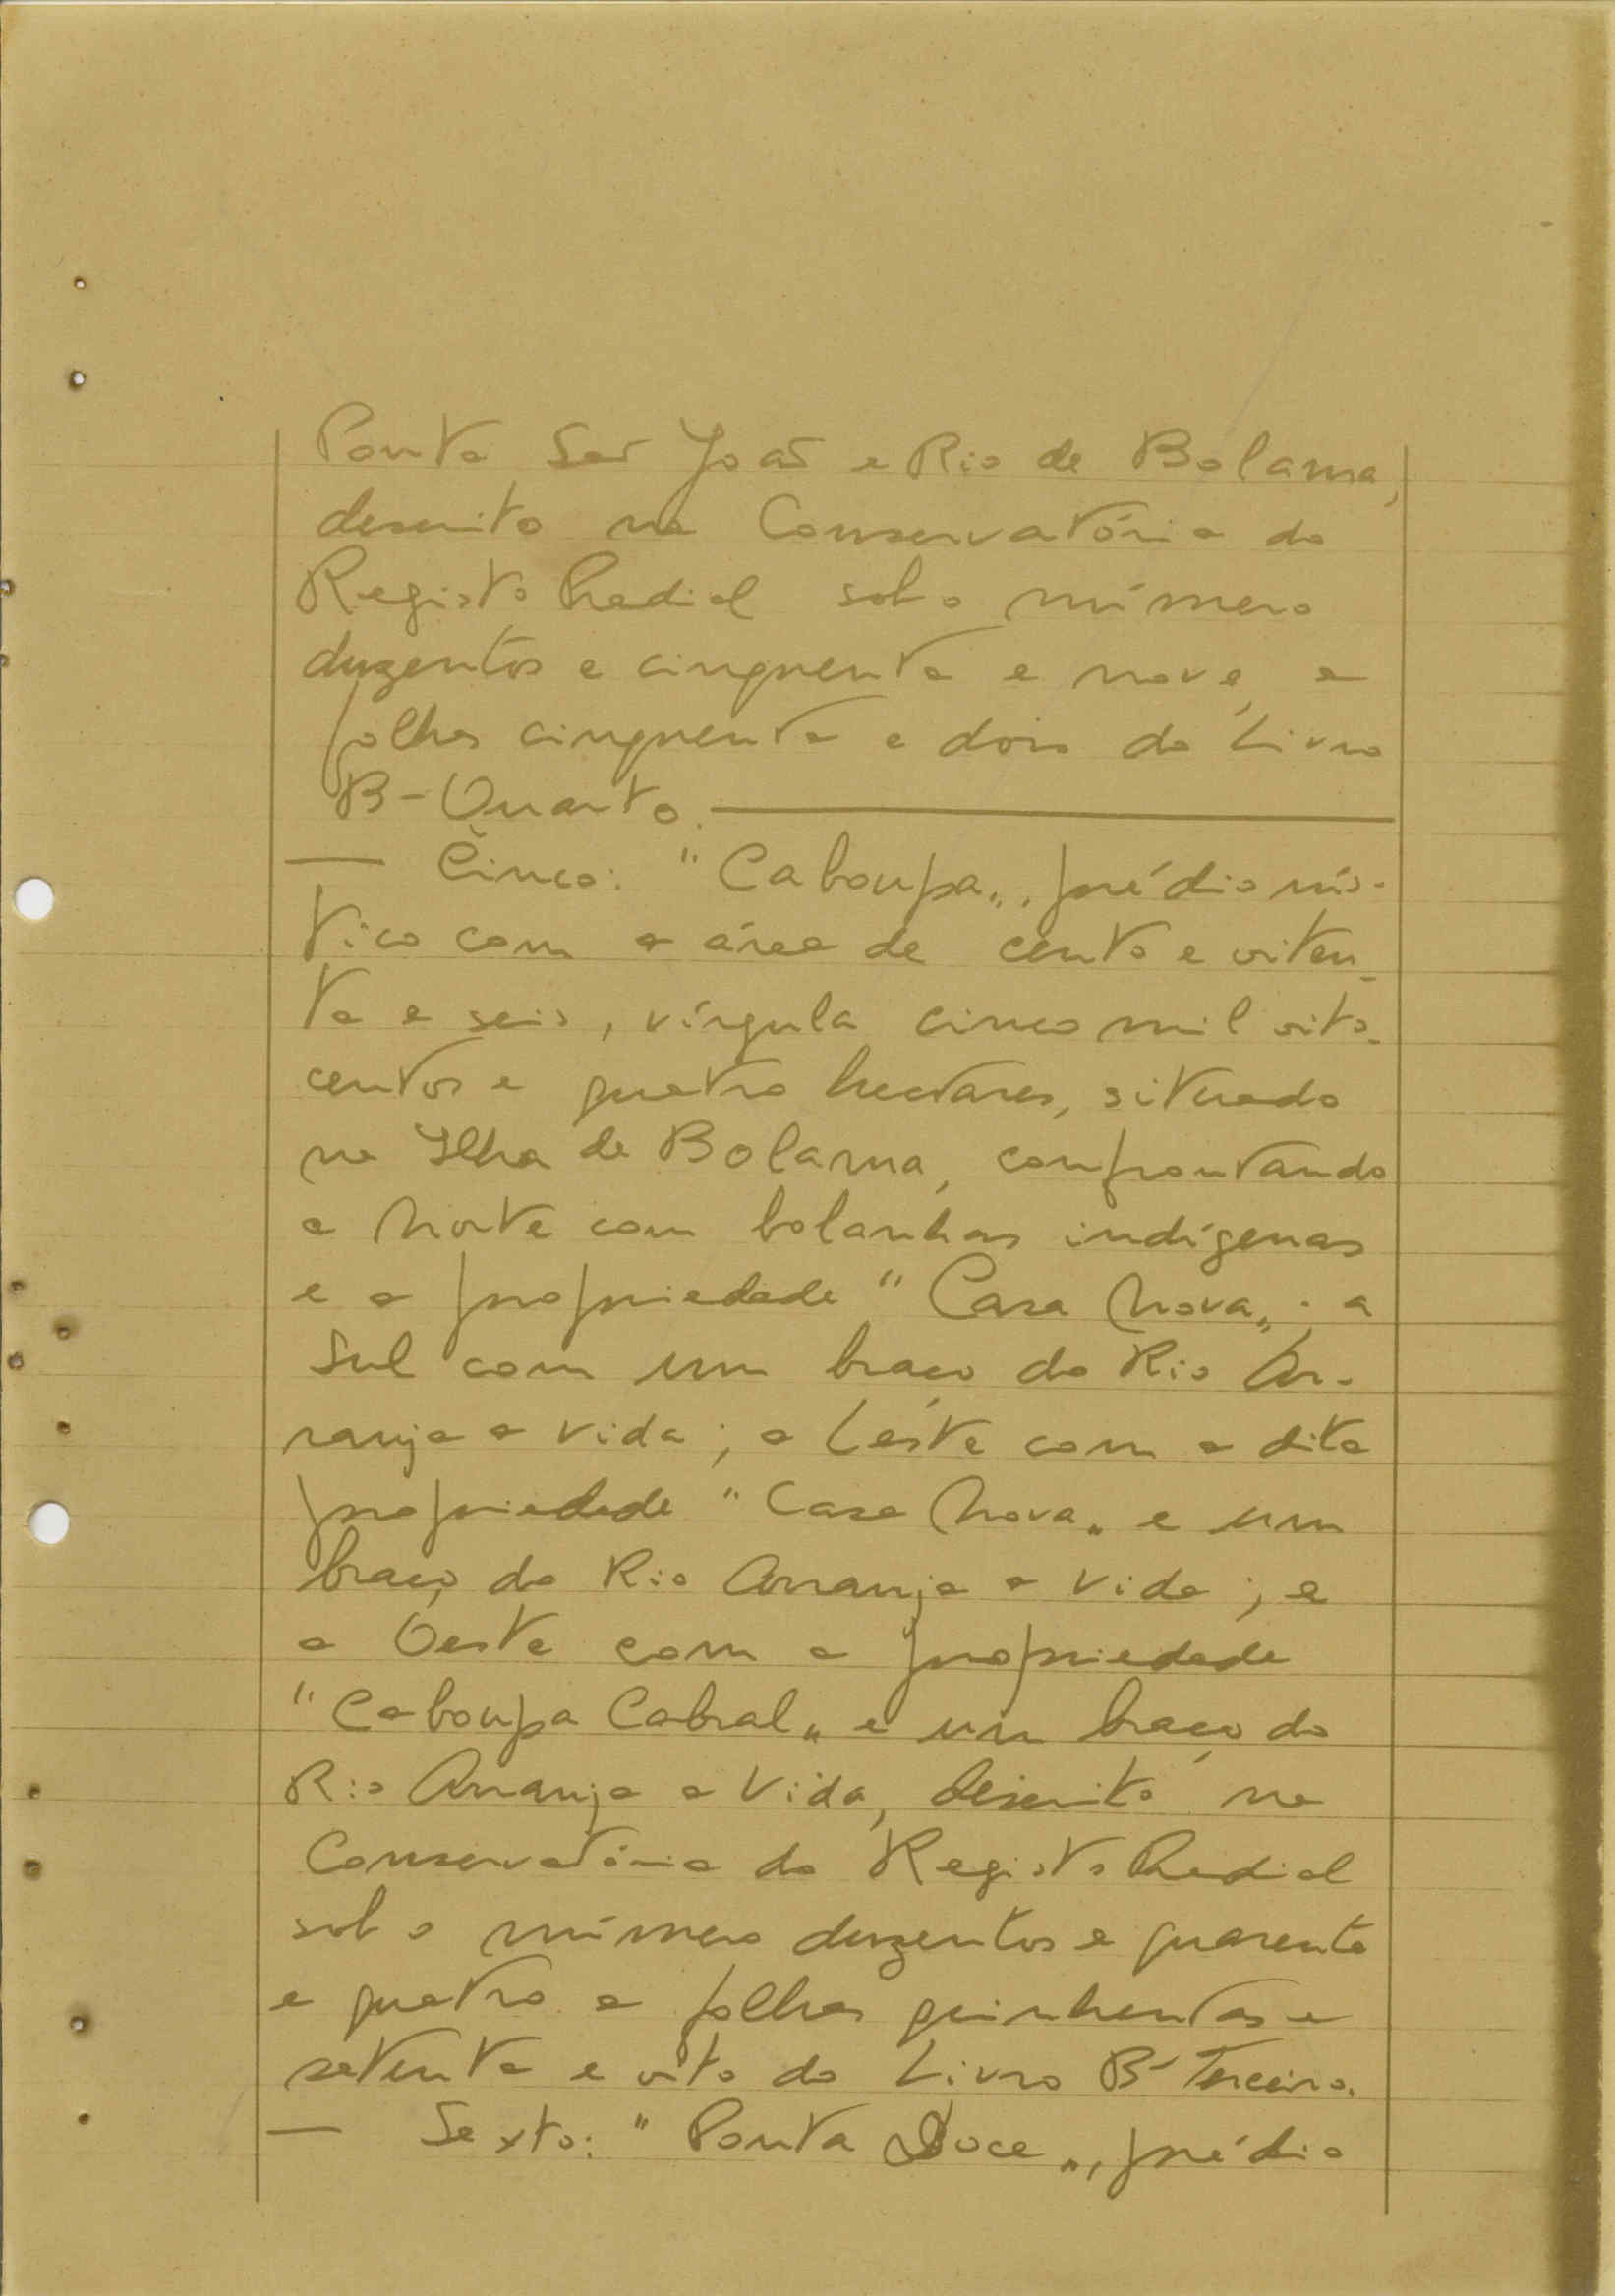 Ponta São João e Rio de Bolama,
descrito na Conservatória do
Registo Predial sob o número
duzentos e cinquenta e nove, a
folhas cinquenta e dois do Livro
B-Quarto.
— Cinco: "Caboupa„, prédio rús-
tico com a área de cento e oiten-
ta e seis, vírgula cinco mil oito-
centos e quatro hectares, situado
na Ilha de Bolama, confrontando
a Norte com bolanhas indígenas
e a propriedade "Casa Nova„; a
Sul com um braço do Rio Ar-
ranja a Vida; a Léste com a dita
propriedade "Casa Nova„ e um
braço do Rio Arranja a Vida; e
a Oeste com a propriedade
"Caboupa Cabral„ e um braço do
Rio Arranja a Vida, descrito na
Conservatória do Registo Predial
sob o número duzentos e quarenta
e quatro a folhas quinhentas e
setenta e oito do Livro B-Terceiro.
— Sexto: "Ponta Doce„, prédio